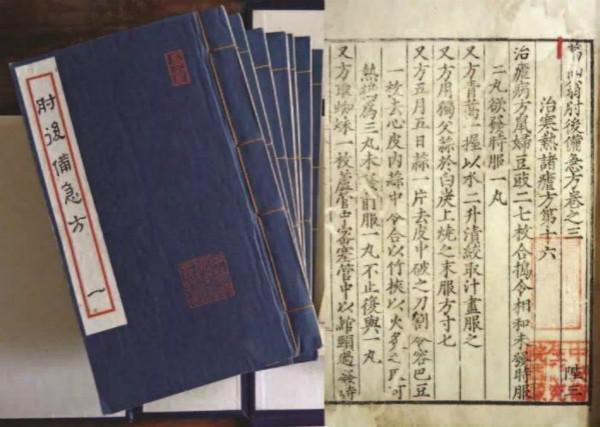 肘後備急方
一
葛仙翁肘後備急方卷之三
治寒熱諸瘧方第十六
治瘧病方鼠婦豆豉二七枚合搗令相和未發時服
二丸欲發時服一丸
又方青蒿一握以水二升漬絞取汁盡服之
又方用獨父蒜於白炭上燒之末服方寸七
又方五月五日蒜一片去皮中破之刀割令容巴豆
一枚去心皮內蒜中令合以竹挾以火炙之取可
熱搗為三丸未發前服一丸不止復與一丸
又方取蜘蛛一枚蘆管中密塞管中以綰頭過發時
陞三